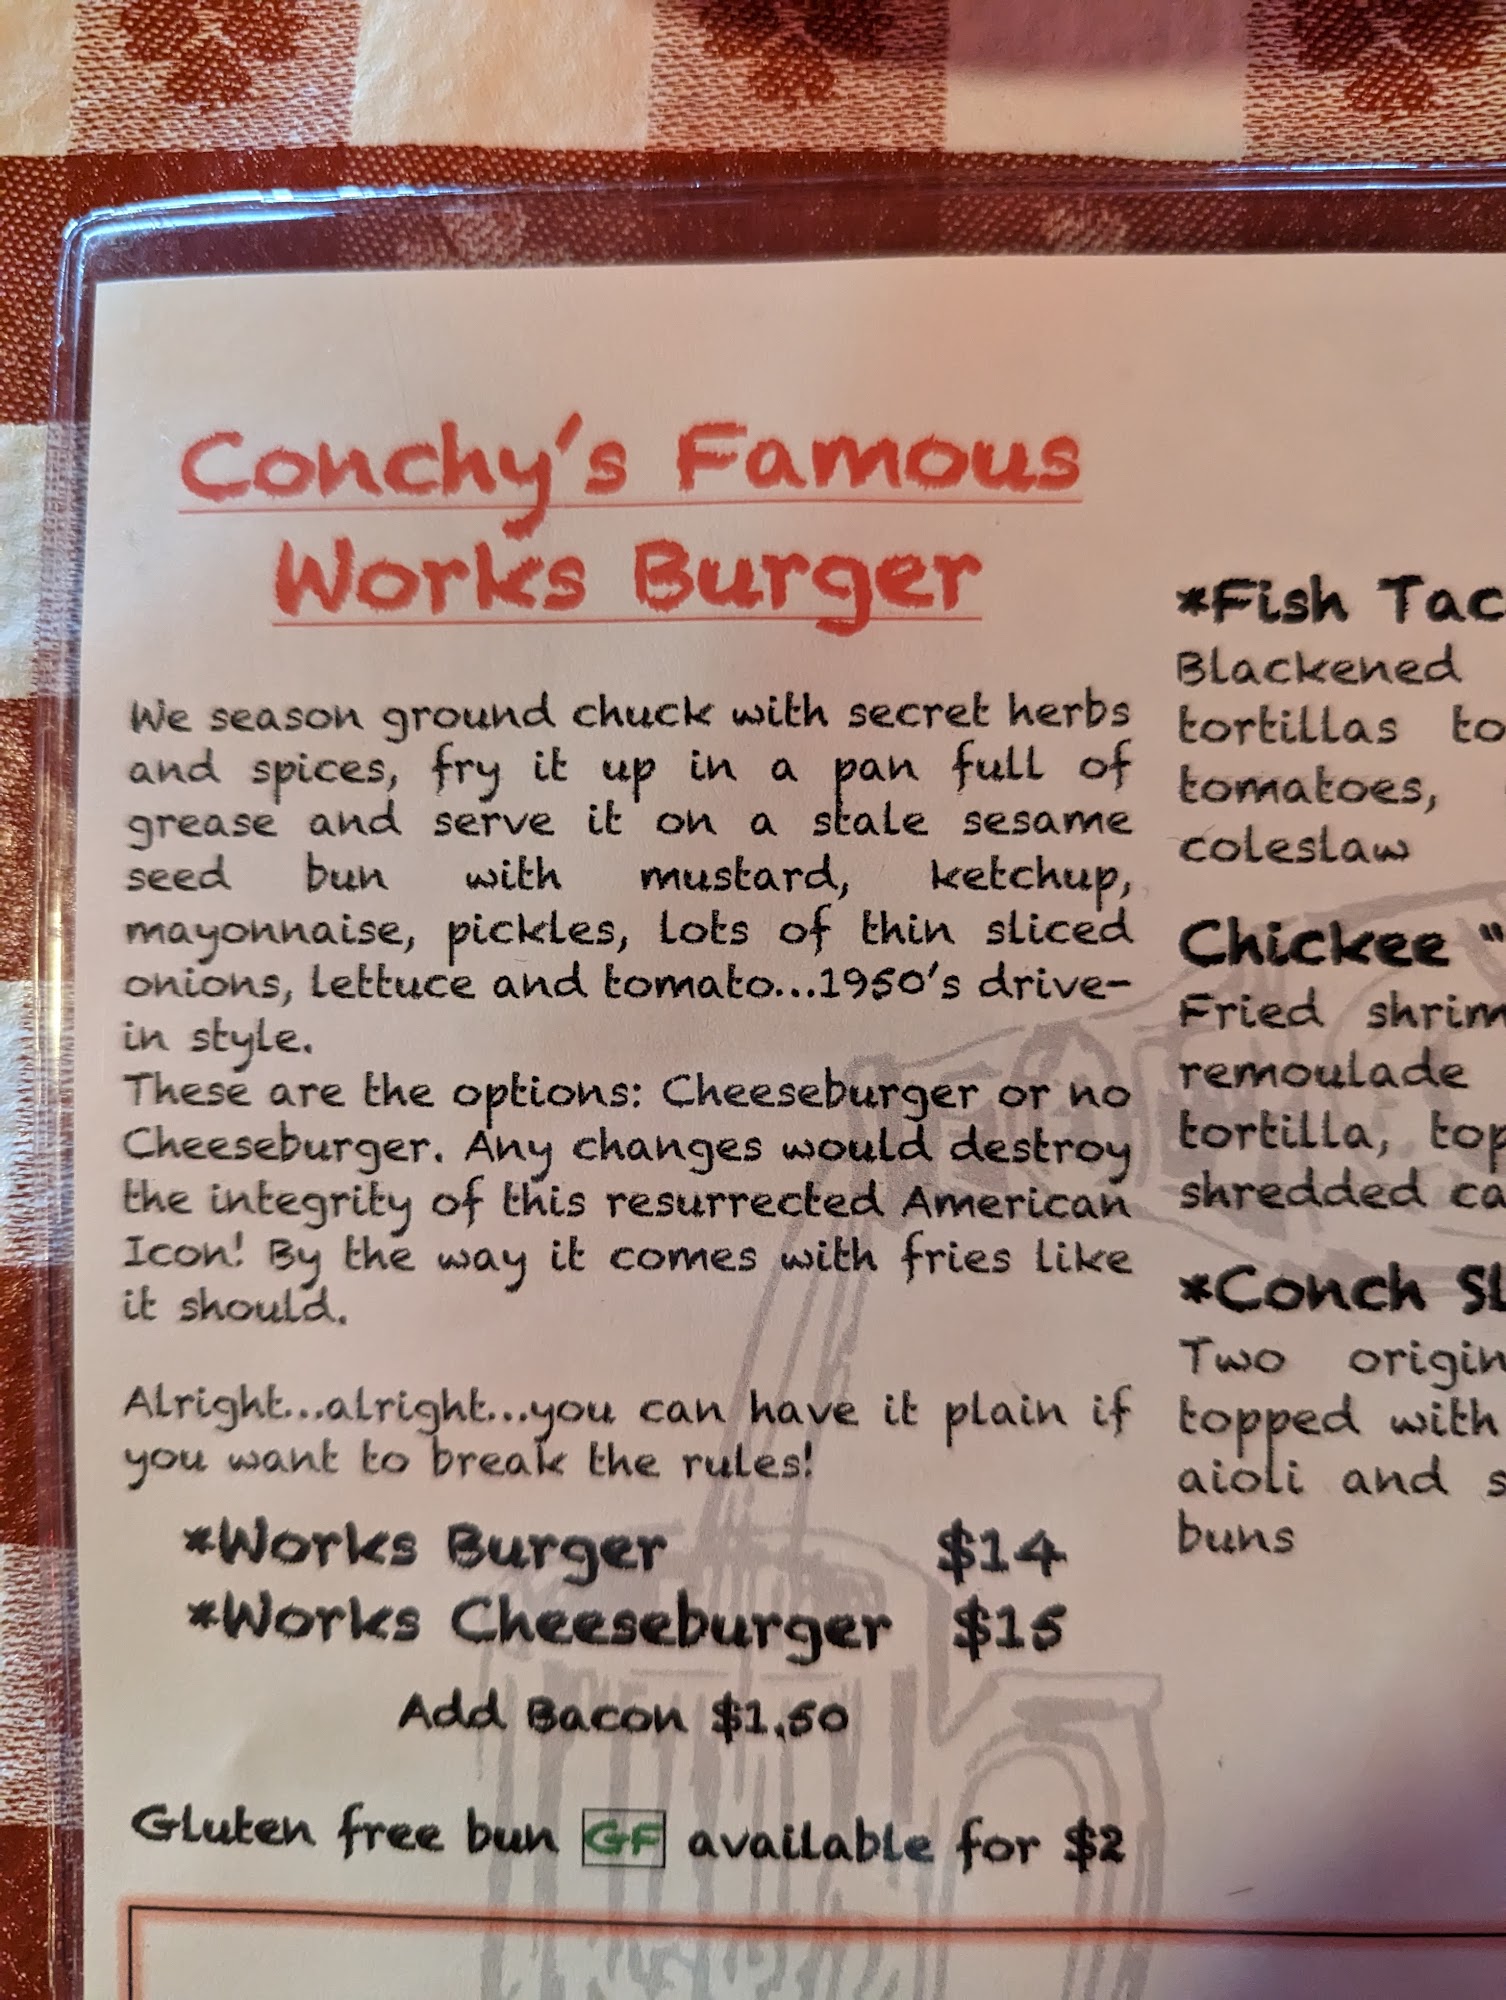 Conchy's Famous
Works Burger
We season ground chuck with secret herbs
and spices, fry it up in a pan full of
grease and serve it on a stale sesame
seed bun with mustard, ketchup,
mayonnaise, pickles, lots of thin sliced
onions, lettuce and tomato...1950's drive-
in style.
These are the options: Cheeseburger or no
Cheeseburger. Any changes would destroy
the integrity of this resurrected American
Icon! By the way it comes with fries like
it should.
Alright...alright...you can have it plain if
you want to break the rules!
*Works Burger $14
*Works Cheeseburger $15
Add Bacon $1.50
Gluten free bun GF available for $2
*Fish
Blackened
tortillas
tomatoes,
coleslaw
Chickee "
Fried
remoulade
tortilla,
shredded
*Conch
Two
topped with
aioli and
buns